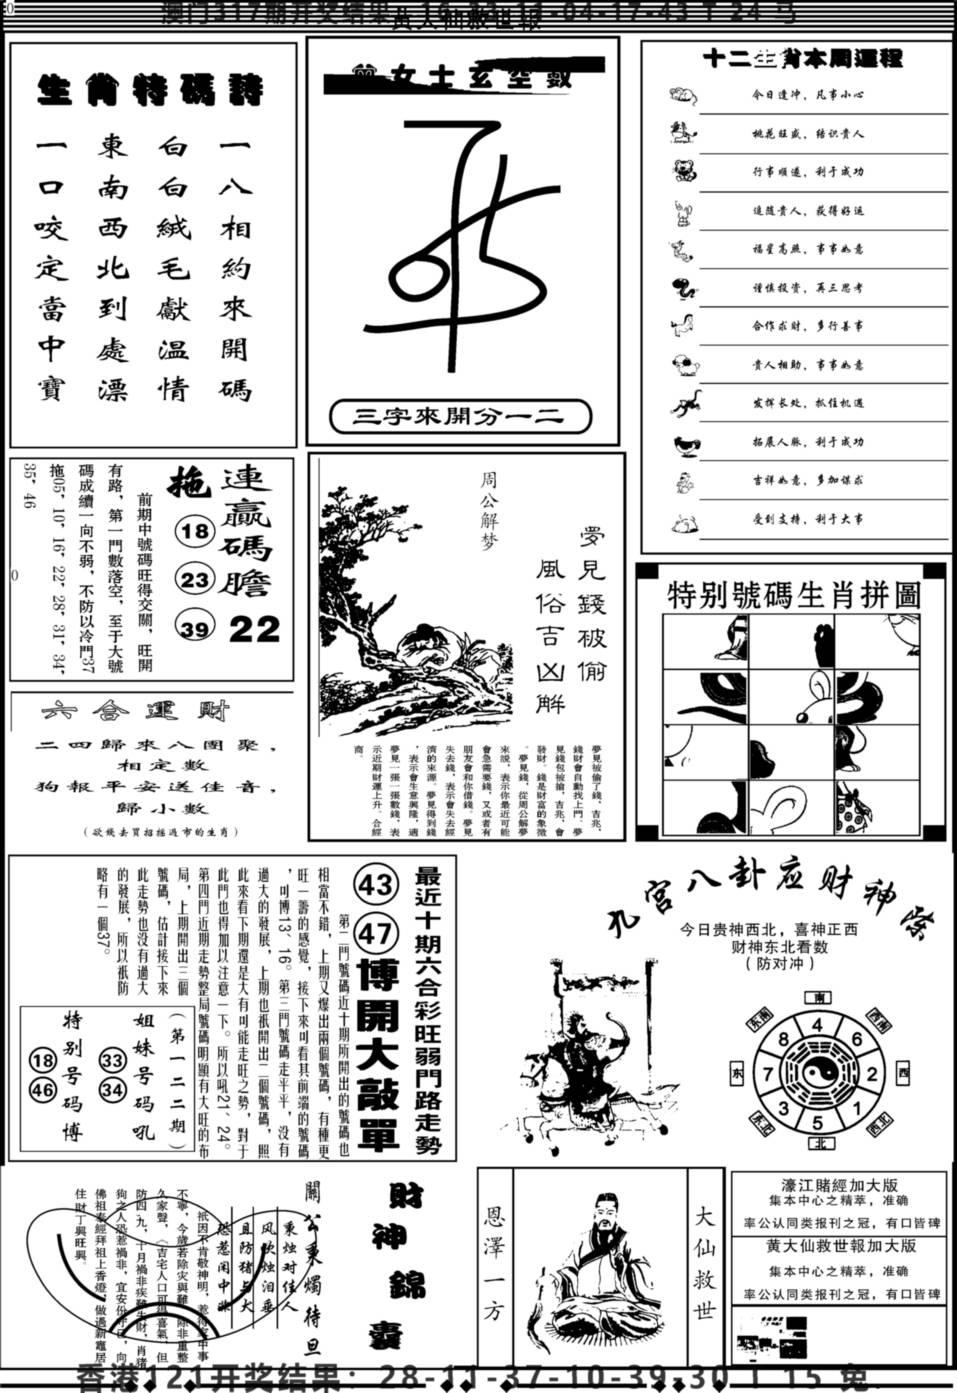 黃大仙救世報
生肖特碼詩
一八相約來開碼
白白絨毛獻溫情
東南西北到處漂
一口咬定當中寶
曾女士玄空數
三字來開分一二
十二生肖本周運程
今日逢冲，凡事小心
桃花旺盛，结识贵人
行事顺遂，利于成功
追随贵人，获得好运
福星高照，事事如意
谨慎投资，再三思考
合作求财，多行善事
贵人相助，事事如意
发挥长处，抓住机遇
拓展人脉，利于成功
吉祥如意，多加谋求
受到支持，利于大事
連贏碼膽 22
拖 18 23 39
前期中號碼旺得交關，旺開
有路，第一門數落空，至于大號
碼成續一向不弱，不防以冷門37
拖05，10，16，22，28，31，34，
35，46
六合運財
二四歸來八團聚，
相定數
狗報平安送佳音，
歸小數
（欲錢去買招搖過市的生肖）
周公解梦
夢見錢被偷
風俗吉凶解
夢見被偷了錢，吉兆，
錢財會自動找上門。夢
見錢包被搶，吉兆，會
發財。錢是財富的象徵
。夢見錢，從周公解夢
來說，表示你最近可能
會急需要錢，又或者有
朋友會和你借錢。夢見
失去錢，表示會失去經
濟的來源。夢見得到錢
，表示會生意興隆，適
夢見一張一張數錢，表
示近期財運上升。合經
商。
特别號碼生肖拼圖
最近十期六合彩旺弱門路走勢
43 47 博開大敲單
第二門號碼近十期所開出的號碼也
相當不錯，上期又爆出兩個號碼，有種更
旺一籌的感覺，接下來可看其前端的號碼
，可博13、16。第三門號碼走平平，没有
過大的發展，上期也祇開出二個號碼，照
此來看下期還是大有可能走旺之勢，對于
此門也得加以注意一下。所以吼21、24。
第四門近期走勢整局號碼明顯有大旺的布
局，上期開出三個
號碼，估計接下來
此走勢也没有過大
的發展，所以祇防
略有一個37。
（第一二二期）
姐妹号码吼 33 34
特别号码博 18 46
九宫八卦应财神际
今日贵神西北，喜神正西
财神东北看数
（防对冲）
南
东南 西南
4
8 6
东 7 2 西
3 1
5
东北 西北
北
財神錦囊
關公秉燭待旦
秉烛对佳人
风吹烛泪垂
且防猪与犬
恩澤一方
大仙救世
濠江賭經加大版
集本中心之精萃，准确
率公认同类报刊之冠，有口皆碑
黄大仙救世報加大版
集本中心之精萃，准确
率公认同类报刊之冠，有口皆碑
香港121开奖结果：28-11-37-10-39-30 T 15 兔